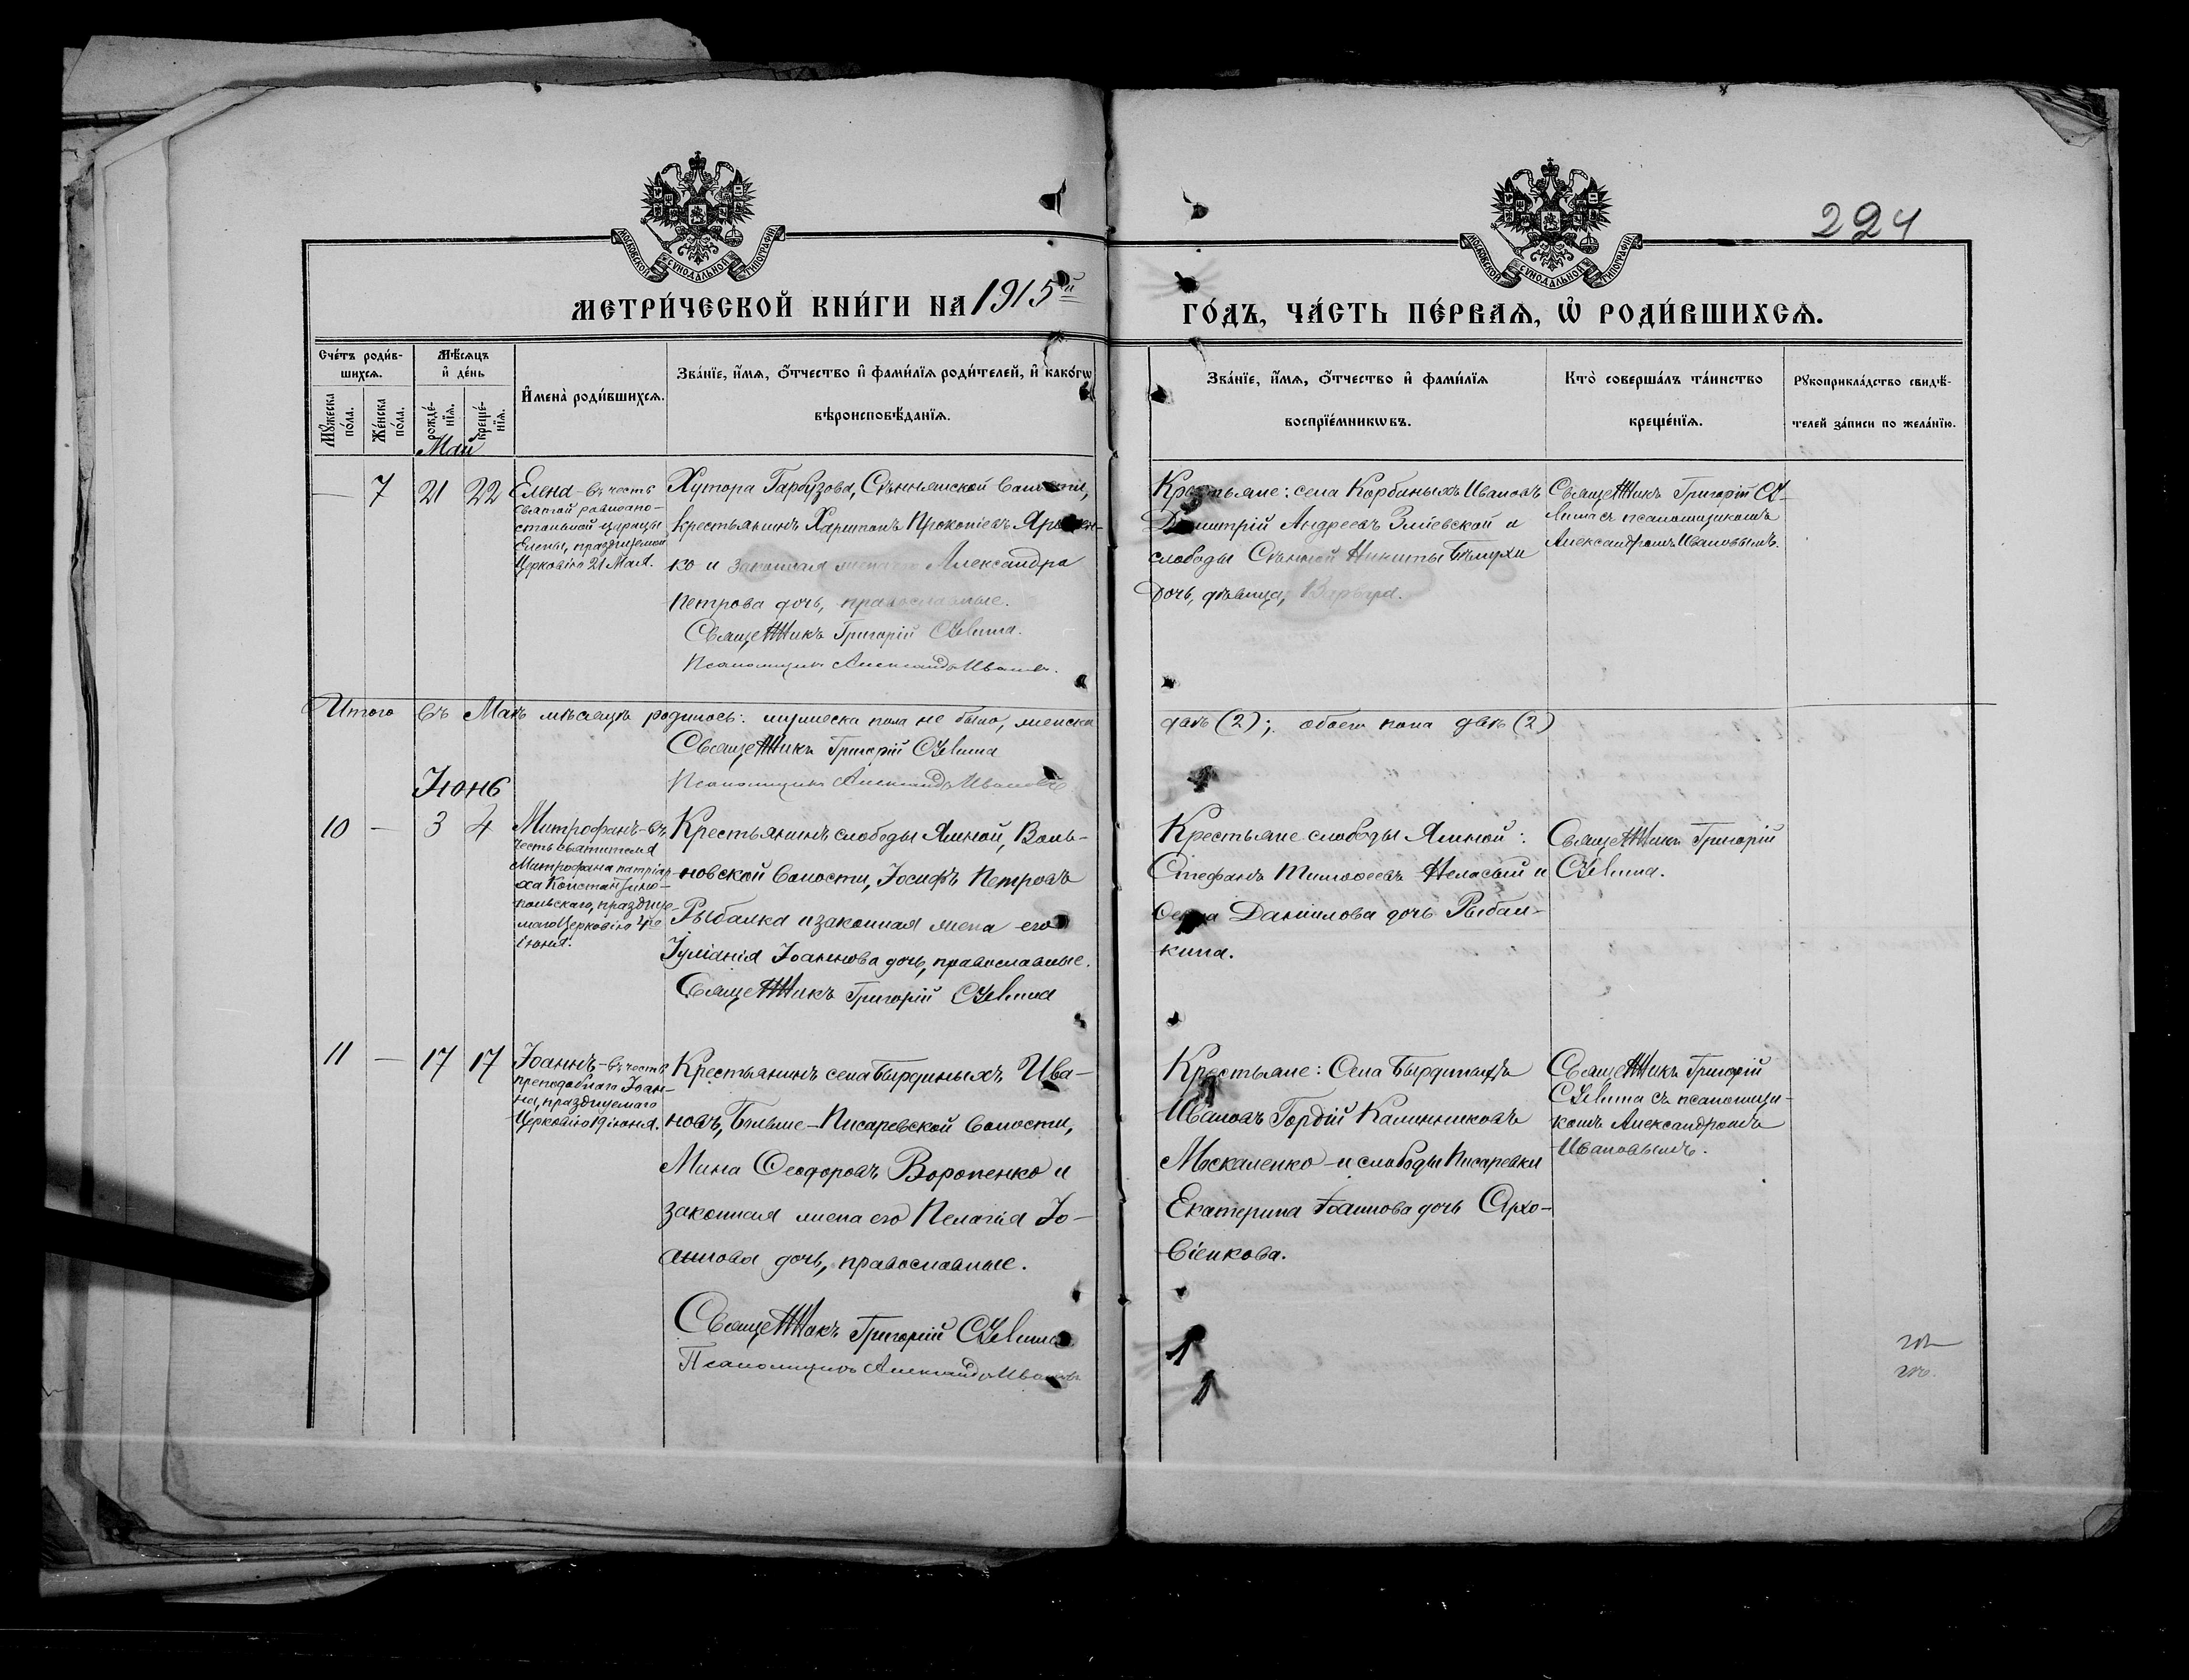 МОСКОВСКОЙ СѴНОДАЛЬНОЙ ТИПОГРАФІИ
МОСКОВСКОЙ СѴНОДАЛЬНОЙ ТИПОГРАФІИ
224
МЕТРИ́ЧЕСКОЙ КНИ́ГИ НА 1915й
ГО́ДЪ, ЧА́СТЬ ПЕ́РВАѦ, Ѡ҆ РОДИ́ВШИХСѦ.
Сче́тъ роди́в-
шихсѧ.
Мꙋ́жеска
по́ла.
Же́нска
по́ла.
Мѣ́сѧцъ
и҆ де́нь
рожде́-
нїѧ.
креще́-
нїѧ.
И҆мена̀ роди́вшихсѧ.
Зва́нїе, и҆́мѧ, ѻ҆́тчество и҆ фами́лїѧ роди́телей, и҆ како́гѡ
вѣроисповѣ́данїѧ.
Зва́нїе, и҆́мѧ, ѻ҆́тчество и҆ фами́лїѧ
воспрїе́мникѡвъ.
Кто̀ соверша́лъ та́инство
креще́нїѧ.
Рꙋкоприкла́дство свидѣ́-
телей за́писи по жела́нїю.
Май
— 7 21 22
Елена - въ честь
святой равноапо-
стольной царицы
Елены, празднуемой
Церковію 21 Мая.
Хутора Гарбузова, Сѣннянской волости,
крестьянинъ Харитонъ Прокопіевъ
ко и законная жена его Александра
Петрова дочь, православные.
Священникъ Григорій
Псаломщикъ Александръ Ивановъ.
Крестьяне: села Корбиныхъ Ивановъ
Димитрій Андреевъ Зміевской и
слободы Сѣнной Никиты
дочь, дѣвица, Варвара.
Священникъ Григорій
съ псаломщикомъ
Александромъ Ивановымъ.
Итого въ Маѣ мѣсяцѣ родилось: мужеска пола не было, женска
двѣ (2); обоего пола двѣ (2)
Священникъ Григорій
Псаломщикъ Александръ Ивановъ
Іюнь
10 — 3 4
Митрофанъ - въ
честь святителя
Митрофана патріар-
ха Константино-
польскаго, праздну-
маго Церковію 4го
іюня.
Крестьянинъ слободы Ямной, Воль-
новской волости, Іосифъ Петровъ
Рыбалка и законная жена его
Іуліанія Іоаннова дочь, православные.
Священникъ Григорій
Крестьяне слободы Ямной:
Стефанъ Тимоѳеевъ и
Даніилова дочь Рыбал-
кина.
Священникъ Григорій
11 — 17 17
Іоаннъ - въ честь
преподобнаго Іоан-
на, празднуемаго
Церковію 19 іюня.
Крестьянинъ села Бырдиныхъ Ива-
новъ, Больше-Писаревской волости,
Мина Ѳеодоровъ Воропенко и
законная жена его Пелагія Іо-
аннова дочь, православные.
Священникъ Григорій
Псаломщикъ Александръ Ивановъ
Крестьяне: Села Бырдиныхъ
Ивановъ Гордій Калинниковъ
Москаленко и слободы Писаревки
Екатерина Іоаннова дочь Архо-
віенкова.
Священникъ Григорій
съ псаломщи-
комъ Александромъ
Ивановымъ.